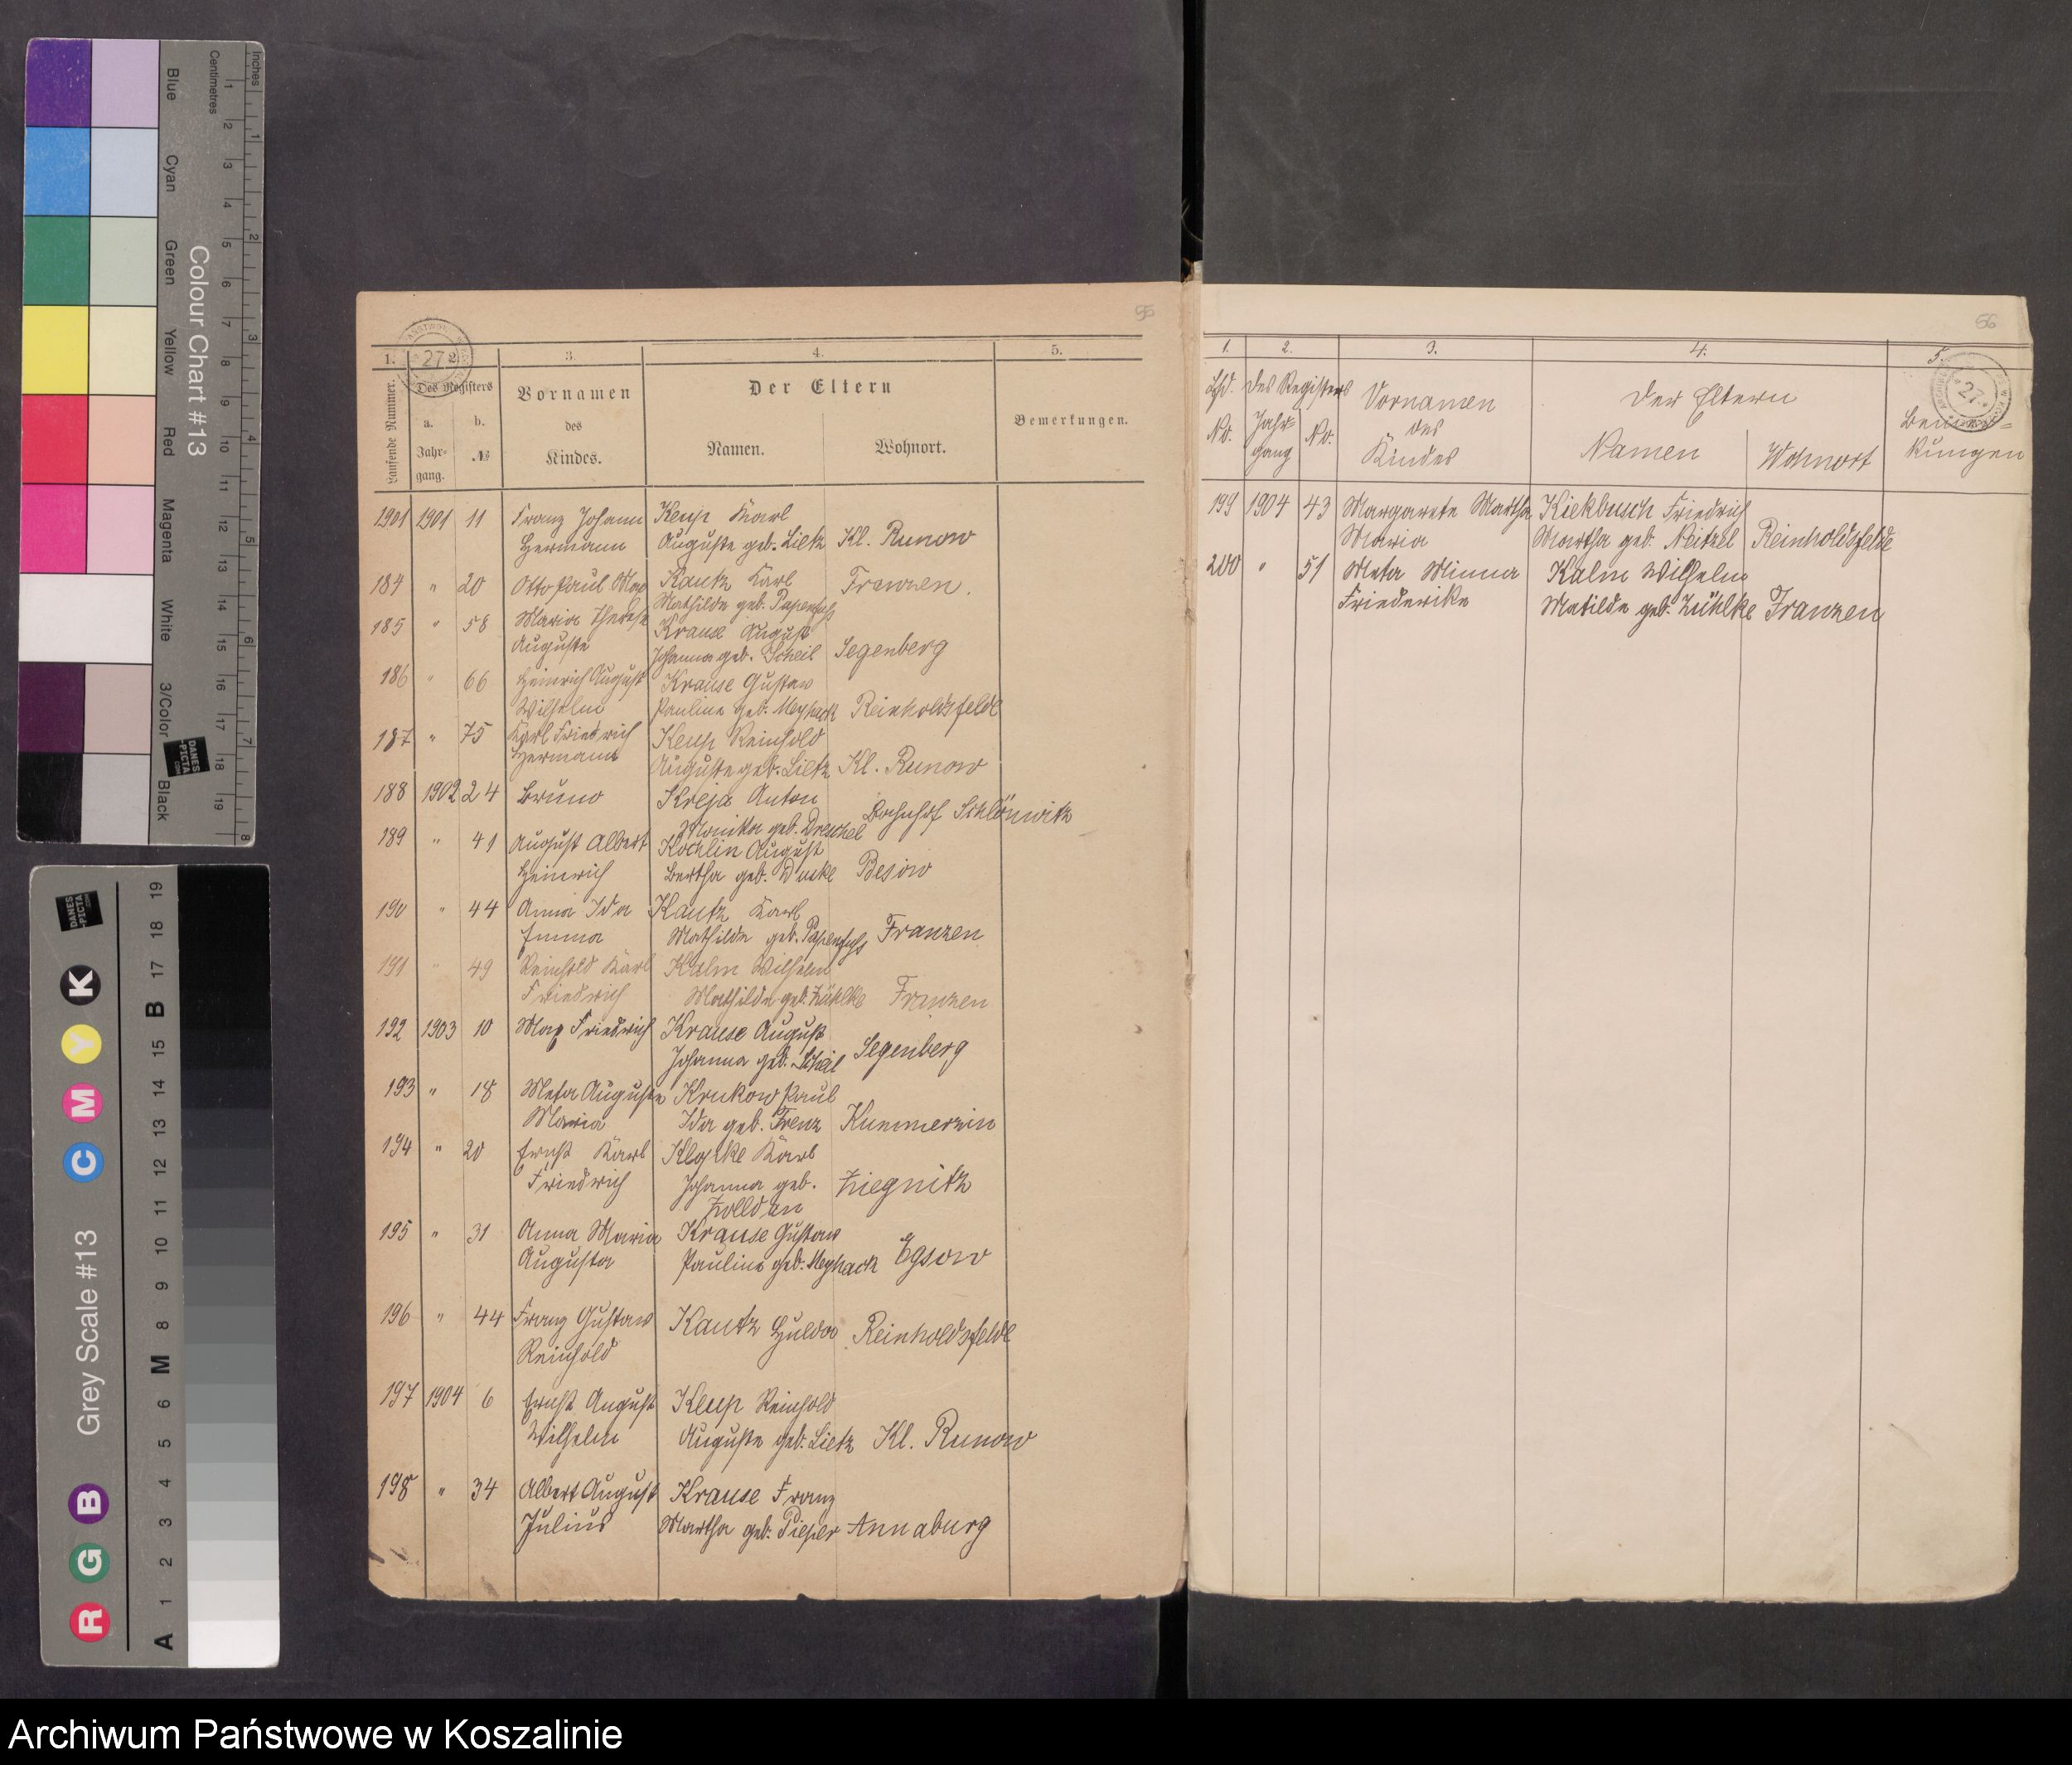 Inches
Centimetres
Colour Chart #13
Blue
Cyan
Green
Yellow
Red
Magenta
White
3/Color
Black
1 2 3 4 5 6 7 8 9 10 11 12 13 14 15 16 17 18 19
1 2 3 4 5 6 7 8
DANES
-PICTA
.COM
Grey Scale #13
R G B C M Y K
A 1 2 3 4 5 6 M 8 9 10 11 12 13 14 15 B 17 18 19
55
27
1. 2. 3. 4. 5.
Laufende Nummer.
Des Registers
Vornamen
Der Eltern
a. b.
des
Bemerkungen.
Jahr-
gang.
№
Kindes.
Namen. Wohnort.
1901 1901 11 Franz Johann Keup Karl
Hermann Auguste geb. Lietz Kl. Runow
184 " 20 Otto Paul Max Kautz Karl Franzen.
Mathilde geb. Papenfuhs
185 " 58 Maria Therese Krause August
Auguste Johanna geb. Scheil Segenberg
186 " 66 Heinrich August Krause Gustaw
Wilhelm Pauline geb. Meyhack Reinholdsfelde
187 " 75 Karl Friedrich Keup Reinhold
Hermann Auguste geb. Lietz Kl. Runow
188 1902 24 Bruno Kreja Anton
Monika geb. Dreschel Bahnhof Schlönwitz
189 " 41 August Albert Köchlin August
Heinrich Bertha geb. Besow
190 " 44 Anna Ida Kautz Karl
Emma Mathilde geb. Papenfuhs Franzen
191 " 49 Reinhold Karl Kalm Wilhelm
Friedrich Mathilde geb. Zühlke Franzen
192 1903 10 Max Friedrich Krause August
Johanna geb. Scheil Segenberg
193 " 18 Meta Auguste Krukow Paul
Maria Ida geb. Frenz Kummerzin
194 " 20 Ernst Karl Karl
Friedrich Johanna geb. Ziegnitz
Zolldan
195 " 31 Anna Maria Krause Gustaw
Augusta Pauline geb. Meyhack Egsow
196 " 44 Franz Gustaw Kautz Hulda Reinholdsfelde
Reinhold
197 1904 6 Ernst August Keup Reinhold
Wilhelm Auguste geb. Lietz Kl. Runow
198 " 34 Albert August Krause Franz
Julius Martha geb. Pieper Annaburg
56
27
1. 2. 3. 4. 5.
Lfd. des Registers Vornamen Der Eltern
No. Jahr- No. des Bemer-
gang Kindes Namen Wohnort kungen
199 1904 43 Margarete Martha Kiekbusch Friedrich
Maria Martha geb. Neitzel Reinholdsfelde
200 " 51 Meta Minna Kalm Wilhelm
Friederike Matilde geb. Zühlke Franzen
Archiwum Państwowe w Koszalinie